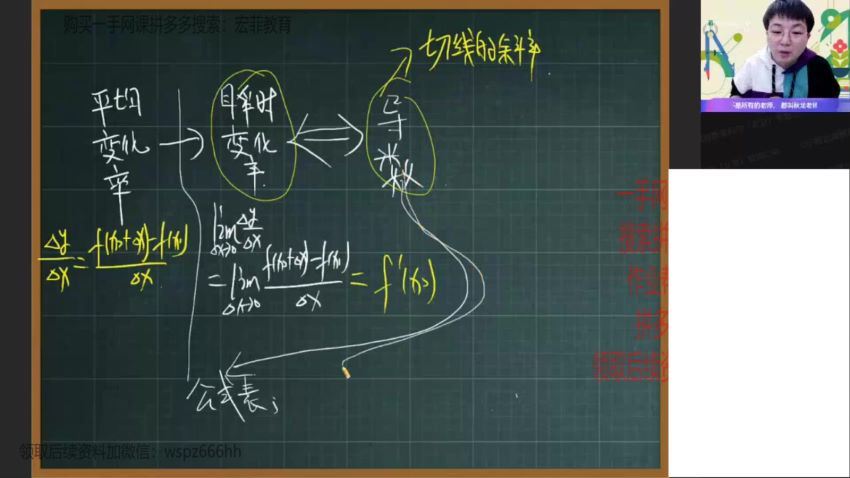 购买一手网课拼多多搜索：宏菲教育
切线的斜率
平均
变化
率
瞬时
变化
率
导
数
Δy/Δx = f(x₀+Δx)-f(x₀)/Δx
lim Δx→0 Δy/Δx
= lim Δx→0 f(x₀+Δx)-f(x₀)/Δx = f'(x₀)
公式表；
领取后续资料加微信：wspz666hh
一手网
搜索
作业帮
拼多
领取后续资